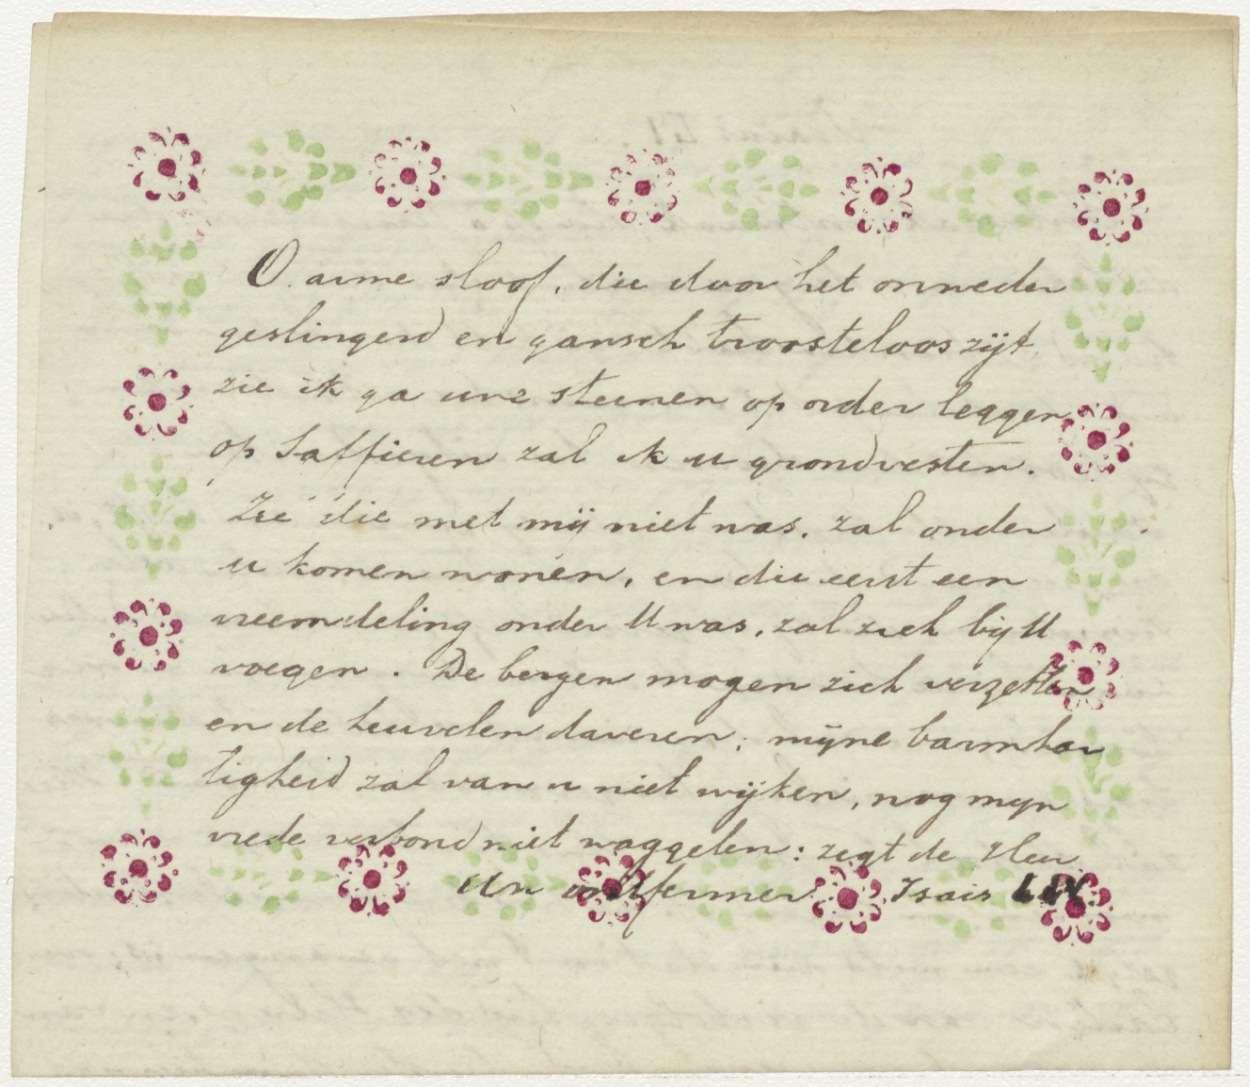 O. arme sloof, die door het onweder
geslingerd en gansch troosteloos zijt,
zie ik ga uwe steenen op order leggen
op Saffieren zal ik u grondvesten.
Zie die met mij niet was, zal onder
u komen wonen, en die eerst een
vreemdeling onder U was, zal zich bij U
voegen. De bergen mogen zich verzetten
en de heuvelen daveren; mijne barmhar
tigheid zal van u niet wijken, nog mijn
vrede verbond niet waggelen: zegt de Heer
Uw ontfermer. Isais LIV.